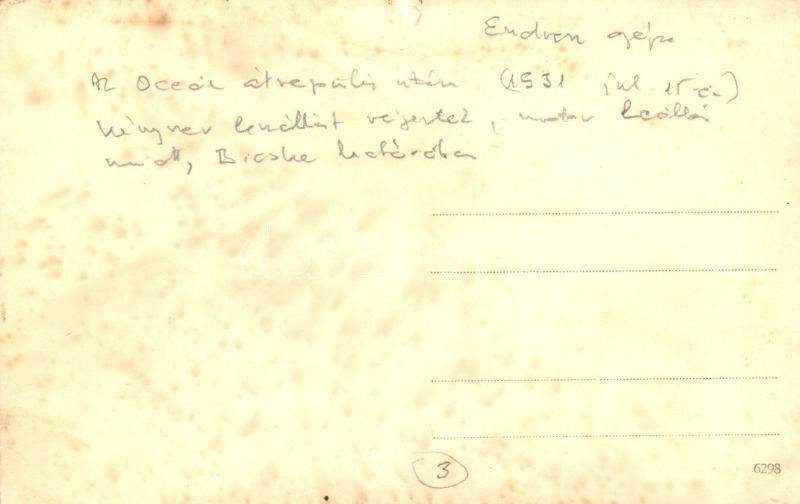 Endresz gépe
Az Oceán átrepülés után (1931 júl. 15-én)
kényszer leszállást végeztek, motor leállás
miatt, Bicske határában
3
6298